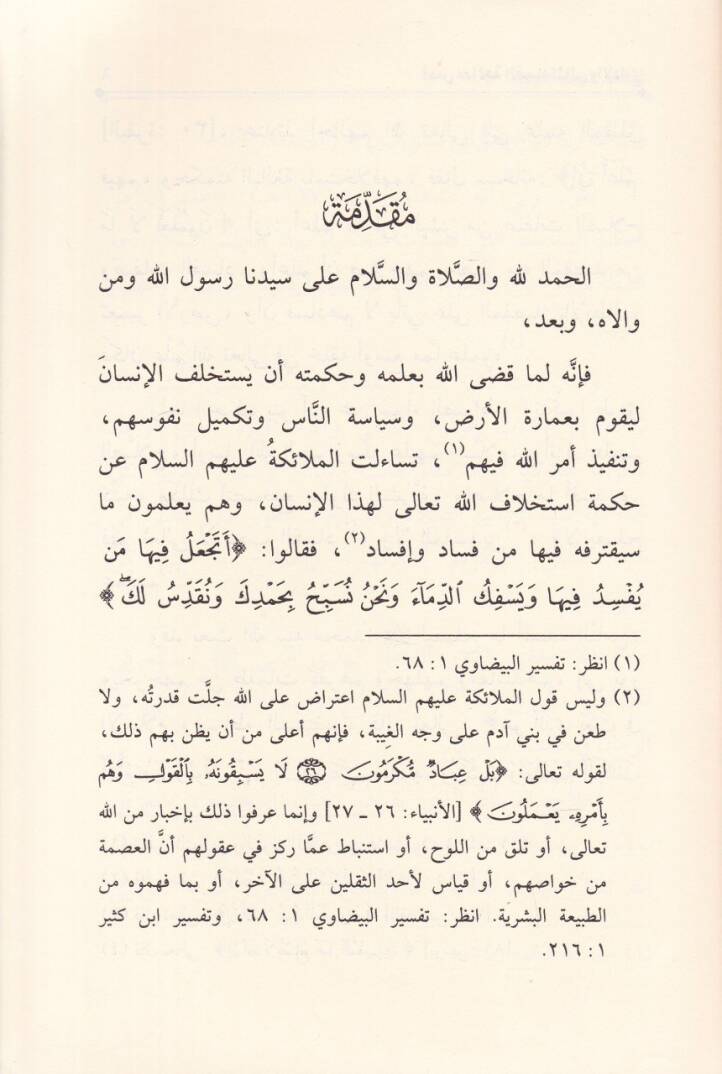 مُقَدِّمَة
الحمد لله والصَّلاة والسَّلام على سيدنا رسول الله ومن
والاه، وبعد،
فإنَّه لما قضى الله بعلمه وحكمته أن يستخلف الإنسانَ
ليقوم بعمارة الأرض، وسياسة النَّاس وتكميل نفوسهم،
وتنفيذ أمر الله فيهم(١)، تساءلت الملائكةُ عليهم السلام عن
حكمة استخلاف الله تعالى لهذا الإنسان، وهم يعلمون ما
سيقترفه فيها من فساد وإفساد(٢)، فقالوا: ﴿أَتَجْعَلُ فِيهَا مَن
يُفْسِدُ فِيهَا وَيَسْفِكُ ٱلدِّمَآءَ وَنَحْنُ نُسَبِّحُ بِحَمْدِكَ وَنُقَدِّسُ لَكَۖ﴾
(١) انظر: تفسير البيضاوي ١: ٦٨.
(٢) وليس قول الملائكة عليهم السلام اعتراض على الله جلَّت قدرتُه، ولا
طعن في بني آدم على وجه الغيبة، فإنهم أعلى من أن يظن بهم ذلك،
لقوله تعالى: ﴿بَلْ عِبَادٌ مُّكْرَمُونَ ۝٢٦ لَا يَسْبِقُونَهُۥ بِٱلْقَوْلِ وَهُم
بِأَمْرِهِۦ يَعْمَلُونَ﴾ [الأنبياء: ٢٦ ـ ٢٧] وإنما عرفوا ذلك بإخبار من الله
تعالى، أو تلق من اللوح، أو استنباط عمَّا ركز في عقولهم أنَّ العصمة
من خواصهم، أو قياس لأحد الثقلين على الآخر، أو بما فهموه من
الطبيعة البشرية. انظر: تفسير البيضاوي ١: ٦٨، وتفسير ابن كثير
١: ٢١٦.